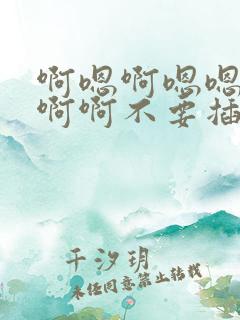 啊嗯啊嗯嗯
啊啊不要插
千汐玥
未经同意禁止转载